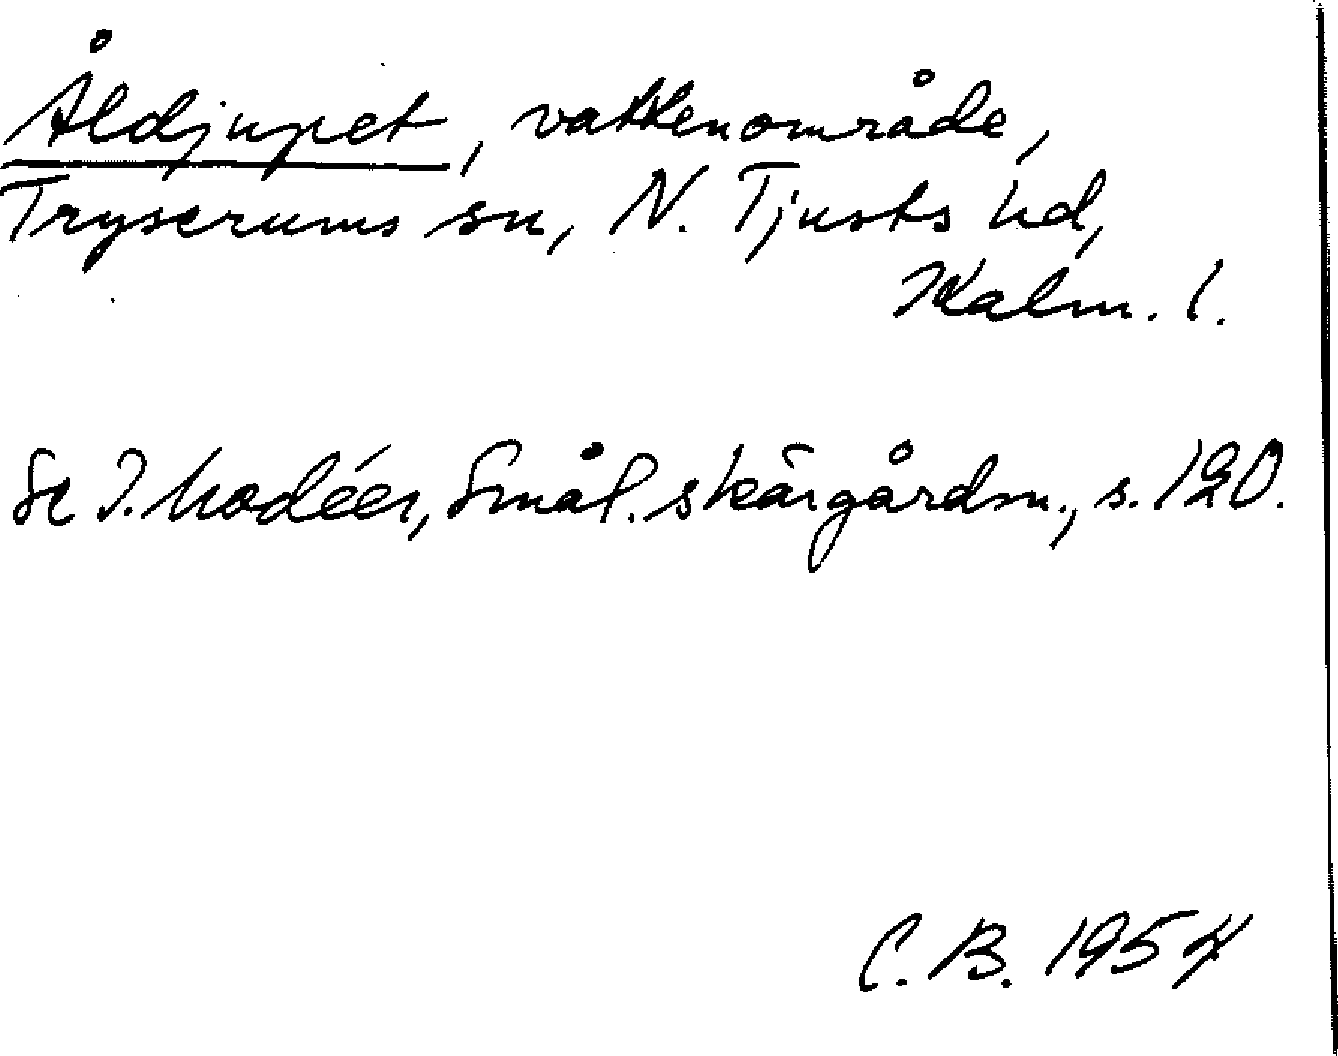 Åldjupet, vattenområde,
Tryserums sn, N. Tjusts hd,
Kalm. l.
Se I. Modéer, Smål. skärgårdsn., s. 120.
C. B. 1954